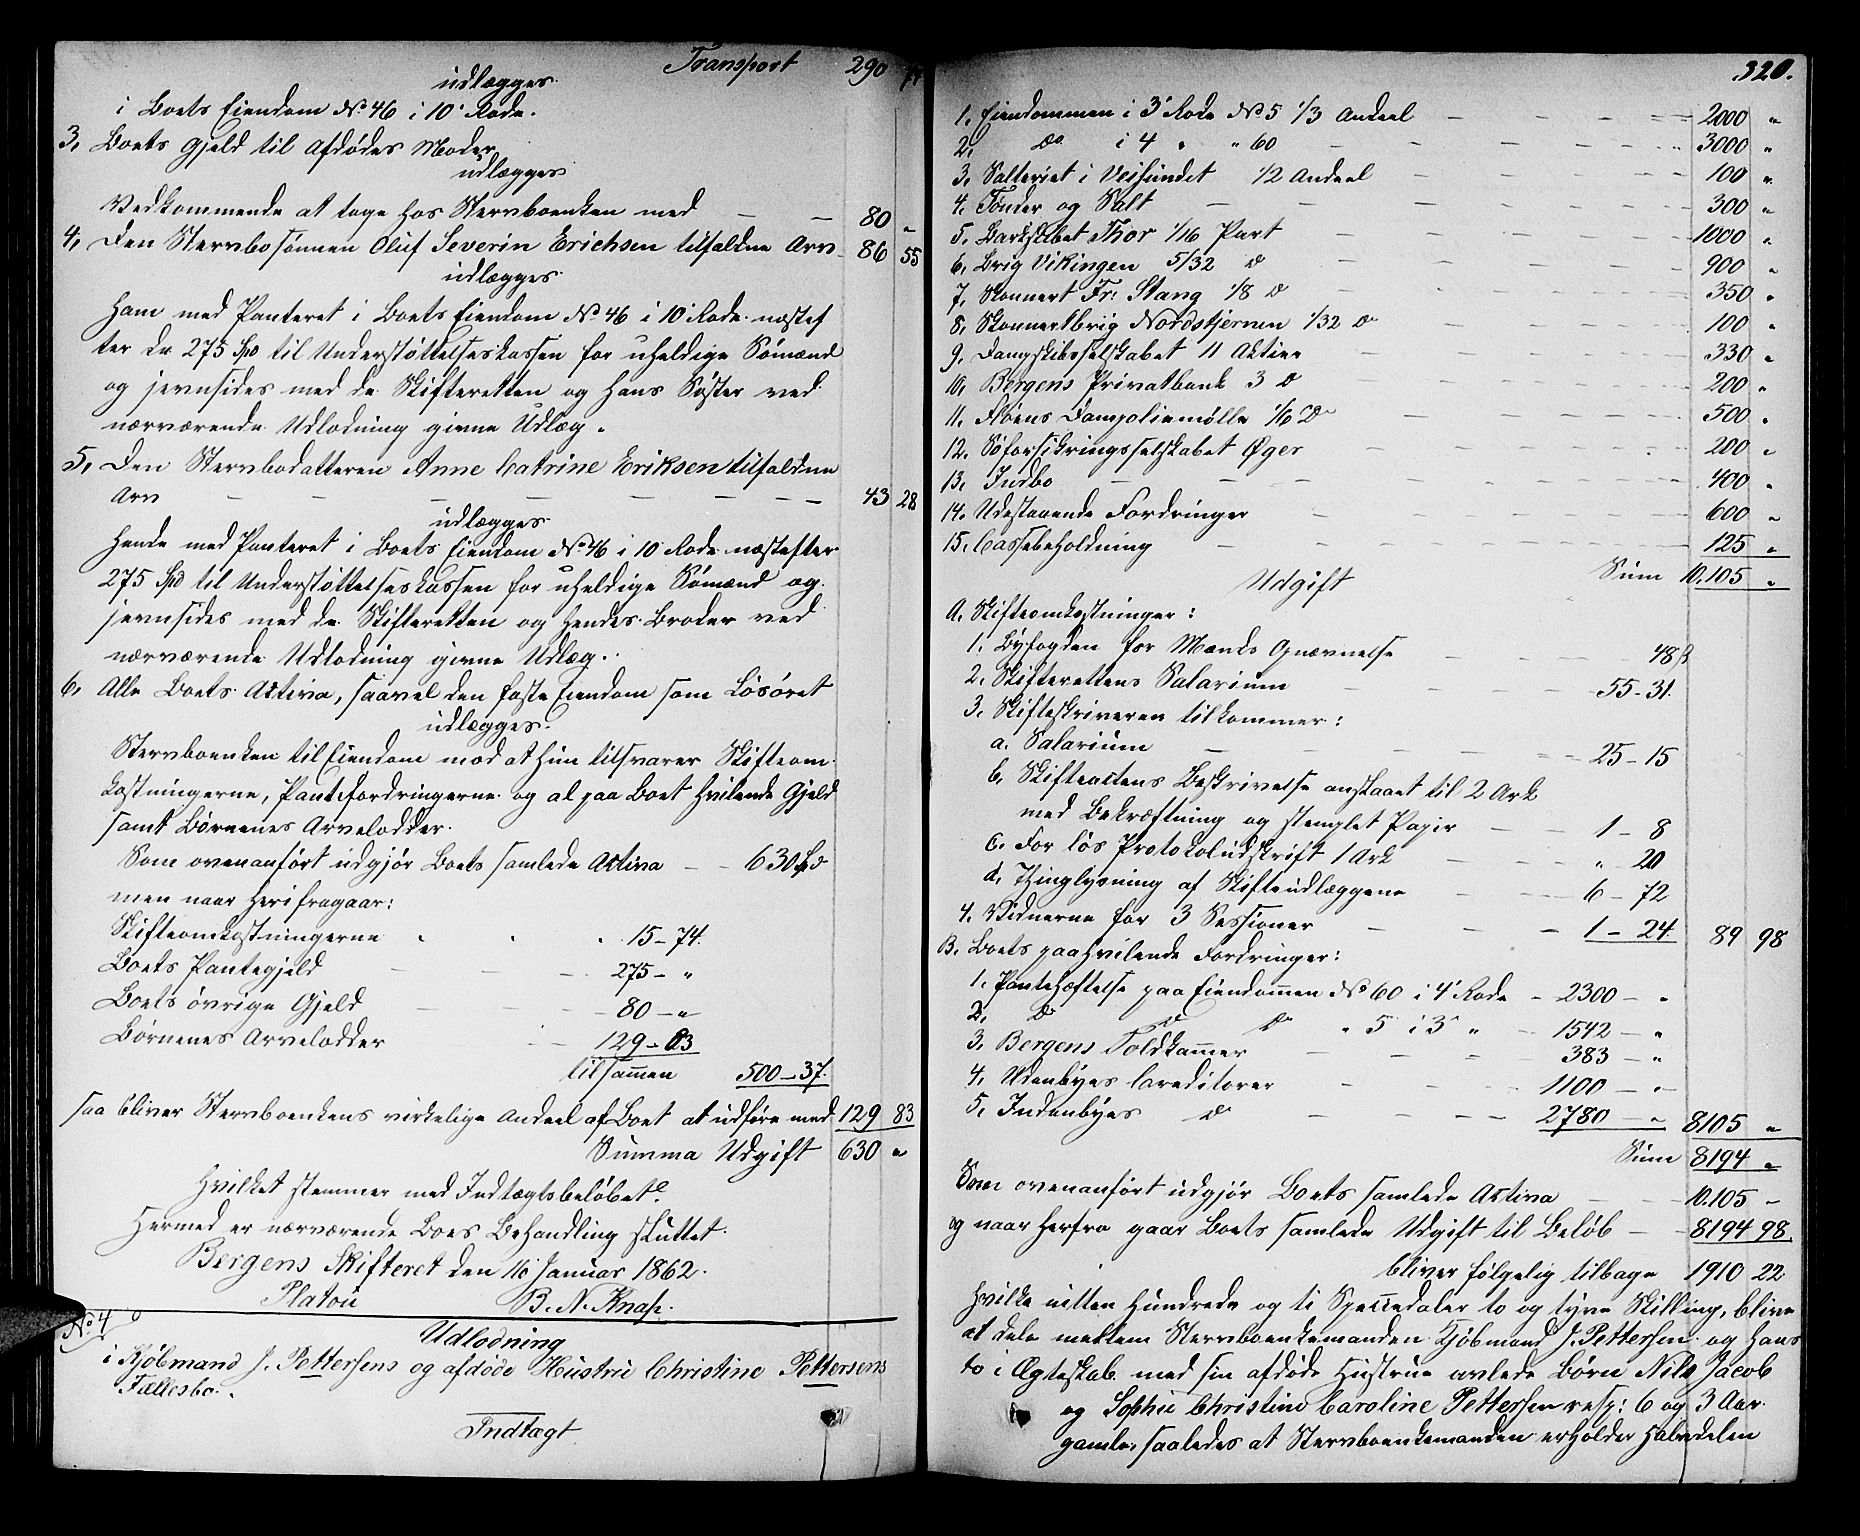 Transport 290 74
udlægges
i Boets Eiendom No 46 i 10' Rode.
3, Boets Gjeld til Afdødes Moder
udlægges
Vedkommende at tage hos Stervboenken med — — 80 „
4, Den Stervbosønnen Oluf Severin Erichsen tilfaldne Arv 86 55
udlægges
Ham med Panteret i Boets Eiendom No 46 i 10 Rode næstef
ter de 275 Spd til Understøttelseskassen for uheldige Sømænd
og jevnsides med de Skifteretten og hans Søster ved
nærværende Udlodning givne Udlæg.
5, Den Stervbodatteren Anne Catrine Eriksen tilfaldne
Arv — — — — — — — — 43 28
udlægges
Hende med Panteret i Boets Eiendom No 46 i 10 Rode næstefter
275 Spd til Understøttelseskassen for uheldige Sømænd og
jevnsides med de Skifteretten og hendes Broder ved
nærværende Udlodning givne Udlæg.
6, Alle Boets Activa, saavel den faste Eiendom som Løsøret
udlægges.
Stervboenken til Eiendom mod at hun tilsvarer Skifteom
kostningerne, Pantefordringerne og al paa Boet hvilende Gjeld
samt Børnenes Arvelodder.
Som ovenanført udgjør Boets samlede Activa — — 630 Spd
men naar herifragaar:
Skifteomkostningerne . . . 15 – 74.
Boets Pantegjeld — — — 275 – „
Boets øvrige Gjeld — — — 80 – „
Børnenes Arvelodder — — 129 – 83
tilsammen 500 – 37.
saa bliver Stervboenkens virkelige Andeel af Boet at udføre med 129 83
Summa Udgift 630 „
Hvilket stemmer med Indtægtsbeløbet.
Hermed er nærværende Boes Behandling sluttet.
Bergens Skifteret den 16 Januar 1862.
Platou B. N. Knap.
No. 4
Udlodning
i Kjøbmand J. Pettersens og afdøde Hustru Christine Pettersens
Fællesbo.
Indtægt
320.
1, Eiendommen i 3' Rode No 5 1/3 Andeel — — — 2000 „
2, Do i 4 „ „ 60 — — — 3000 „
3, Salteriet i Veisundet 1/2 Andeel — — — 100 „
4. Tønder og Salt — — — 300 „
5. Barkskibet Thor 1/16 Part — — — 1000 „
6, Brig Vikingen 5/32 do — — — 900 „
7, Skonnert Fr: Stang 1/8 do — — — 350 „
8, Skonnertbrig Nordstjernen 1/32 do — — — 100 „
9, Dampskibsselskabet 11 Aktier — — — 330 „
10, Bergens Privatbank 3 do — — — 200 „
11. Fløens Dampoliemølle 1/6 do — — — 500 „
12. Søforsikringsselskabet Øger — — — 200 „
13. Indbo — — — 400 „
14. Udestaaende Fordringer — — — 600 „
15. Cassebeholdning — — — 125 „
Sum 10.105 „
Udgift
A. Skifteomkostninger:
1. Byfogden for Mænds Opnævnelse — — — 48 ß
2. Skifterettens Salarium — — — 55 – 31.
3. Skifteskriveren tilkommer:
a. Salarium — — — 25 – 15
b. Skifteactens Beskrivelse anslaaet til 2 Ark
med Bekræftning og stemplet Papir — — 1 – 8
c. For løs Protokoludskrift 1 Ark — — „ 20
d, Thinglysning af Skifteudlæggene — — 6 – 72
4. Vidnerne for 3 Sessioner — — 1 – 24. 89 98
B. Boets paahvilende Fordringer:
1. Pantehæftelse paa Eiendommen No 60 i 4' Rode – 2300 – „
2. do do do „ 5 i 3 „ – 1542 – „
3. Bergens Toldkammer — — — 383 – „
4. Udenbyes Creditorer — — — 1100 – „
5, Indenbyes do — — — 2780 – „ 8105 „
Sum 8194 „
Som ovenanført udgjør Boets samlede Activa — — 10.105 –
og naar herfra gaar Boets samlede Udgift til Beløb — — 8194 98.
bliver følgelig tilbage 1910 22
Hvilke nitten Hundrede og ti Speciedaler to og tyve Skilling, blive
at dele mellem Stervboenkemanden Kjøbmand J. Pettersen og hans
to i Ægteskab med sin afdøde Hustrue avlede Børn Nils Jacob
og Sophie Christine Caroline Pettersen resp: 6 og 3 Aar
gamle, saaledes at Stervboenkemanden erholder Halvdelen